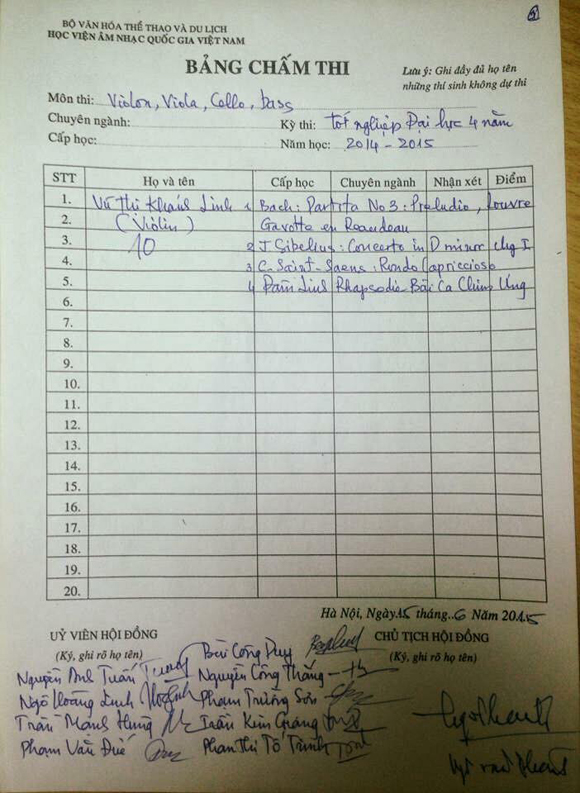 BỘ VĂN HÓA THỂ THAO VÀ DU LỊCH
HỌC VIỆN ÂM NHẠC QUỐC GIA VIỆT NAM
BẢNG CHẤM THI
Lưu ý: Ghi đầy đủ họ tên
những thí sinh không dự thi
Môn thi: Violon, Viola, Cello, bass
Chuyên ngành:
Kỳ thi: tốt nghiệp Đại học 4 năm
Cấp học:
Năm học: 2014 - 2015
STT Họ và tên Cấp học Chuyên ngành Nhận xét Điểm
1. Vũ Thị Khánh Linh 1 Bach: Partita No 3: Preludio, Louvre
2. (Violin) Gavotte en Roandeau
3. 10 2 J. Sibelius: Concerto in D minor chg I
4. 3 C. Saint-Saens: Rondo Capriccioso
5. 4 Đàm Linh Rhapsodia Bài Ca Chim Ưng
6.
7.
8.
9.
10.
11.
12.
13.
14.
15.
16.
17.
18.
19.
20.
Hà Nội, Ngày 15 tháng 6 Năm 2015
UỶ VIÊN HỘI ĐỒNG
CHỦ TỊCH HỘI ĐỒNG
(Ký, ghi rõ họ tên)
(Ký, ghi rõ họ tên)
Bùi Công Duy
Nguyễn Anh Tuấn Nguyễn Công Thắng
Ngô Hoàng Linh Phạm Trường Sơn
Trần Mạnh Hùng Kim Giang
Phạm Văn Phan Thị Tố Trinh